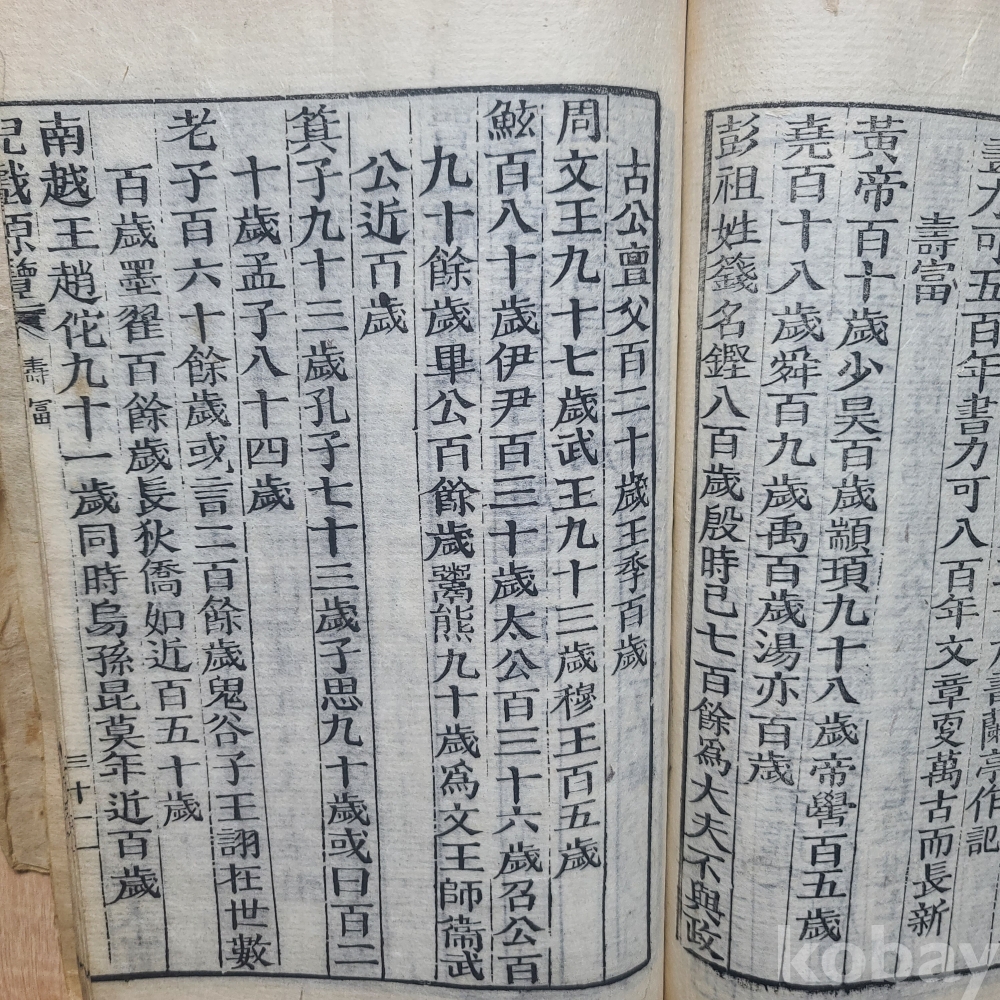 畫力可五百年書力可八百年文章更萬古而長新
壽富
黃帝百十歲少昊百歲顓頊九十八歲帝嚳百五歲
堯百十八歲舜百九歲禹百歲湯亦百歲
彭祖姓籛名鏗八百歲殷時已七百餘爲大夫不與政
古公亶父百二十歲王季百歲
周文王九十七歲武王九十三歲穆王百五歲
鮌百八十歲伊尹百三十歲太公百三十六歲召公百
九十餘歲畢公百餘歲鬻熊九十歲爲文王師衞武
公近百歲
箕子九十三歲孔子七十三歲子思九十歲或曰百二
十歲孟子八十四歲
老子百六十餘歲或言二百餘歲鬼谷子王詡在世數
百歲墨翟百餘歲長狄僑如近百五十歲
南越王趙佗九十一歲同時烏孫昆莫年近百歲
壽富
三十一
kobay